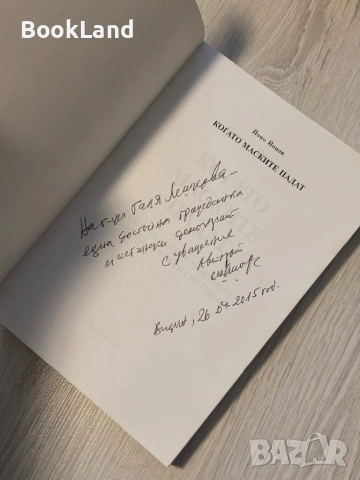 BookLand
Йоно Йонов
КОГАТО МАСКИТЕ ПАДАТ
На г-жа Галя
една достойна гражданка
и истински демократ
с уважение
Авторът
Видин, 26.04.2015 год.
BAZAR
bg